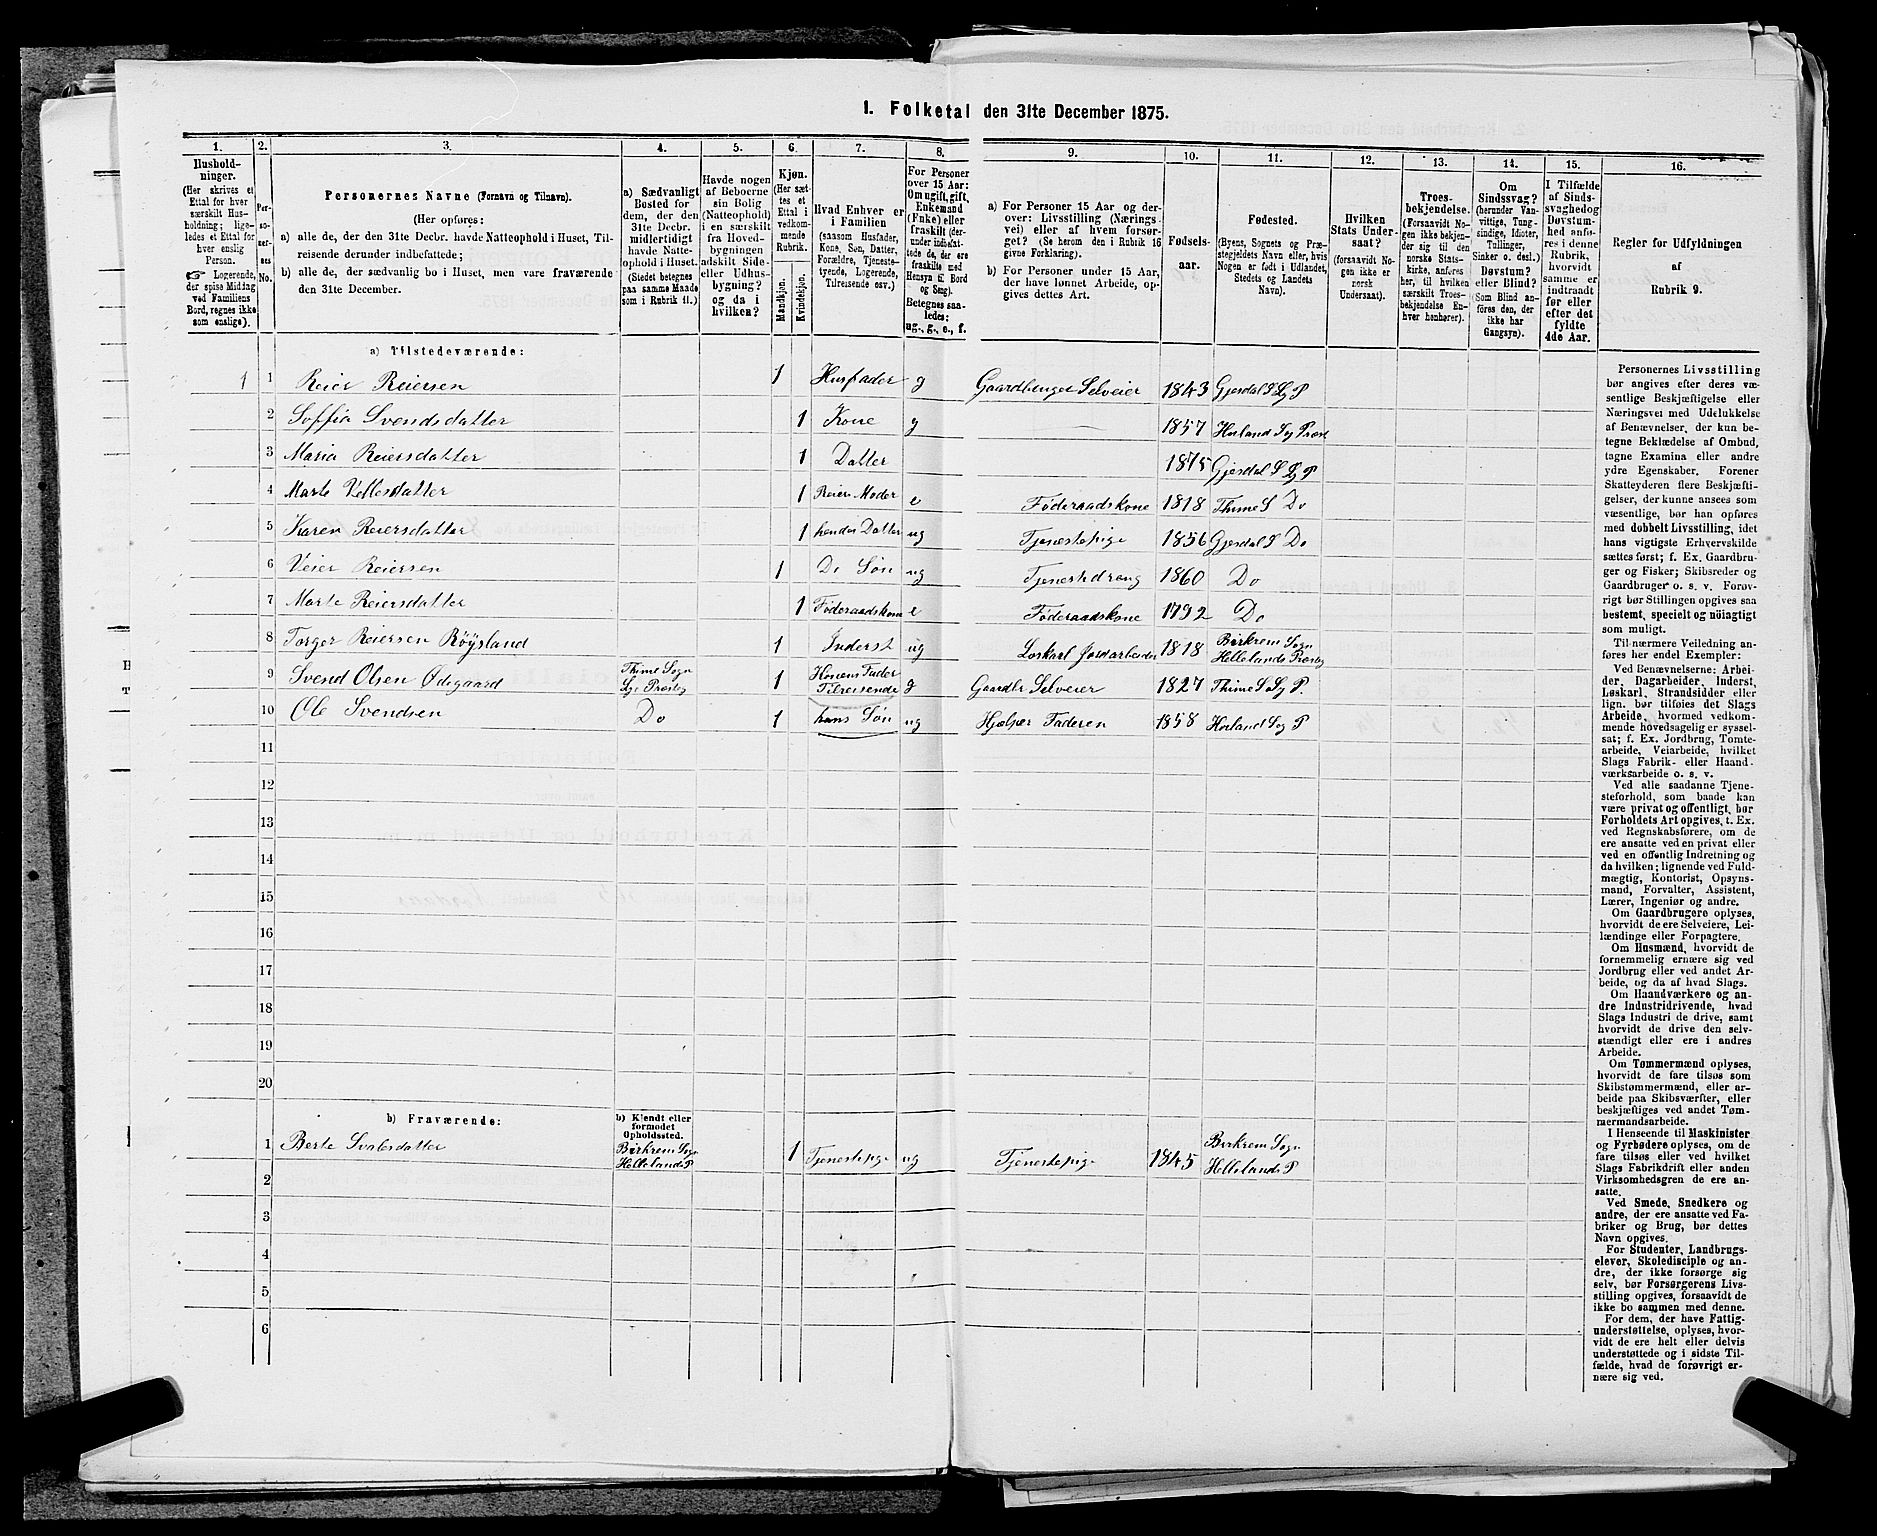 1. Folketal den 31te December 1875.
1.
Hushold-
ninger.
(Her skrives et
Ettal for hver
særskilt Hus-
holdning; lige-
ledes et Ettal for
hver enslig
Person.
☞ Logerende,
der spise Middag
ved Familiens
Bord, regnes ikke
som enslige).
2.
Per-
so-
ner-
nes
No.
3.
Personernes Navne (Fornavn og Tilnavn).
(Her opføres:
a) alle de, der den 31te Decbr. havde Natteophold i Huset, Til-
reisende derunder indbefattede;
b) alle de, der sædvanlig bo i Huset, men vare fraværende
den 31te December.
4.
a) Sædvanligt
Bosted for
dem, der den
31te Decbr.
midlertidigt
havde Natte-
ophold i Huset.
(Stedet betegnes
paa samme Maade
som i Rubrik 11.)
5.
Havde nogen
af Beboerne
sin Bolig
(Natteophold)
i en særskilt
fra Hoved-
bygningen
adskilt Side-
eller Udhus-
bygning?
og da i
hvilken?
6.
Kjøn.
(Her sæt-
tes et
Ettal i
vedkom-
mende
Rubrik.
Mandkjøn.
Kvindekjøn.
7.
Hvad Enhver er
i Familien
(saasom Husfader,
Kone, Søn, Datter,
Forældre, Tjeneste-
tyende, Logerende,
Tilreisende osv.)
8.
For Personer
over 15 Aar:
Om ugift, gift,
Enkemand
(Enke) eller
fraskilt (der-
under indbefat-
tede de, der ere
fraskilte med
Hensyn til Bord
og Seng).
Betegnes saa-
ledes:
ug., g., e., f.
9.
a) For Personer 15 Aar og der-
over: Livsstilling (Nærings-
vei) eller af hvem forsør-
get? (Se herom den i Rubrik 16
givne Forklaring).
b) For Personer under 15 Aar,
der have lønnet Arbeide, op-
gives dettes Art.
10.
Fødsels-
aar.
11.
Fødested.
(Byens, Sognets og Præ-
stegjeldets Navn eller, hvis
Nogen er født i Udlandet,
Stedets og Landets
Navn).
12.
Hvilken
Stats Under-
saat?
(forsaavidt No-
gen ikke er
norsk
Undersaat).
13.
Troes-
bekjendelse.
(Forsaavidt No-
gen ikke bekjen-
der sig til den
norske Stats-
kirke, anføres
her, til hvilken
særskilt Troes-
bekjendelse En-
hver henhører).
14.
Om
Sindssvag?
(herunder Van-
vittige, Tung-
sindige, Idioter,
Tullinger,
Sinker o. desl.)
Døvstum?
eller Blind?
(Som Blind an-
føres den, der
ikke har
Gangsyn).
15.
I Tilfælde
af Sinds-
svaghed og
Døvstum-
hed anfø-
res i denne
Rubrik,
hvorvidt
samme er
indtraadt
før eller
efter det
fyldte
4de Aar.
16.
Regler for Udfyldningen
af
Rubrik 9.
a) Tilstedeværende:
1 1 Reier Reiersen 1 Husfader g Gaardbruger Selveier 1843 Gjesdal S Ly P
2 Soffia Svendsdatter 1 Kone g 1857 Høiland S og Præst
3 Maria Reiersdatter 1 Datter 1875 Gjesdal S Ly P
4 Marte Vellesdatter 1 Reiers Moder e Føderaadskone 1818 Thime S Do
5 Karen Reiersdatter 1 hendes Datter ug Tjenestepige 1856 Gjesdal S Do
6 Veier Reiersen 1 Do Søn ug Tjenestedreng 1860 Do
7 Marte Reiersdatter 1 Føderaadskone e Føderaadskone 1792 Do
8 Torger Reiersen Röysland 1 Inderst ug Løskarl Jordarbeider 1818 Birkrem Sogn
Hellelands Præstg
9 Svend Olsen Ødegaard Thime Sogn
Ly Præstg 1 Konens Fader
Tilreisende g Gaardbr Selveier 1827 Thime S Ly P.
10 Ole Svendsen Do 1 hans Søn ug Hjelper Faderen 1858 Høiland S og P
11
12
13
14
15
16
17
18
19
20
b) Fraværende:
b) Kjendt eller
formodet
Opholdssted.
1 Berte Svalesdatter Birkrem Sogn
Hellelands P 1 Tjenestepige ug Tjenestepige 1845 Birkrem Sogn
Hellelands P
2
3
4
5
6
Personernes Livsstilling
bør angives efter deres væ-
sentlige Beskjæftigelse eller
Næringsvei med Udelukkelse
af Benævnelser, der kun be-
tegne Beklædelse af Ombud,
tagne Examina eller andre
ydre Egenskaber. Forener
Skatteyderen flere Beskjæfti-
gelser, der kunne ansees som
væsentlige, bør han opføres
med dobbelt Livsstilling, idet
hans vigtigste Erhvervskilde
sættes først; f. Ex. Gaardbru-
ger og Fisker; Skibsreder og
Gaardbruger o. s. v. Forøv-
rigt bør Stillingen opgives saa
bestemt, specielt og nøiagtigt
som muligt.
Til nærmere Veiledning an-
føres her endel Exempler:
Ved Benævnelserne: Arbei-
der, Dagarbeider, Inderst,
Løskarl, Strandsidder eller
lign. bør tilføies det Slags
Arbeide, hvormed vedkom-
mende hovedsagelig er syssel-
sat; f. Ex. Jordbrug, Tomte-
arbeide, Veiarbeide, hvilket
Slags Fabrik- eller Haand-
værksarbeide o. s. v.
Ved alle saadanne Tjene-
steforhold, som baade kan
være privat og offentligt, bør
Forholdets Art opgives, t. Ex.
ved Regnskabsførere, om de
ere ansatte ved en privat eller
ved en offentlig Indretning og
da hvilken; lignende ved Fuld-
mægtig, Kontorist, Opsyns-
mand, Forvalter, Assistent,
Lærer, Ingeniør og andre.
Om Gaardbrugere oplyses,
hvorvidt de ere Selveiere, Lei-
lændinge eller Forpagtere.
Om Husmænd, hvorvidt de
fornemmelig ernære sig ved
Jordbrug eller ved andet Ar-
beide, og da af hvad Slags.
Om Haandværkere og an-
dre Industridrivende, hvad
Slags Industri de drive, samt
hvorvidt de drive den selv-
stændigt eller ere i andres
Arbeide.
Om Tømmermænd oplyses,
hvorvidt de fare tilsøs som
Skibstømmermænd, eller ar-
beide paa Skibsværfter, eller
beskjæftiges ved andet Tøm-
mermandsarbeide.
I Henseende til Maskinister
og Fyrbødere oplyses, om de
fare tilsøs eller ved hvilket
Slags Fabrikdrift eller anden
Virksomhedsgren de ere an-
satte.
Ved Smede, Snedkere og
andre, der ere ansatte ved Fa-
briker og Brug, bør dettes
Navn opgives.
For Studenter, Landbrugs-
elever, Skoledisciple og an-
dre, der ikke forsørge sig
selv, bør Forsørgerens Livs-
stilling opgives, forsaavidt de
ikke bo sammen med denne.
For dem, der have Fattig-
understøttelse, oplyses, hvor-
vidt de ere helt eller delvis
understøttede og i sidste Til-
fælde, hvad de forøvrigt er-
nære sig ved.